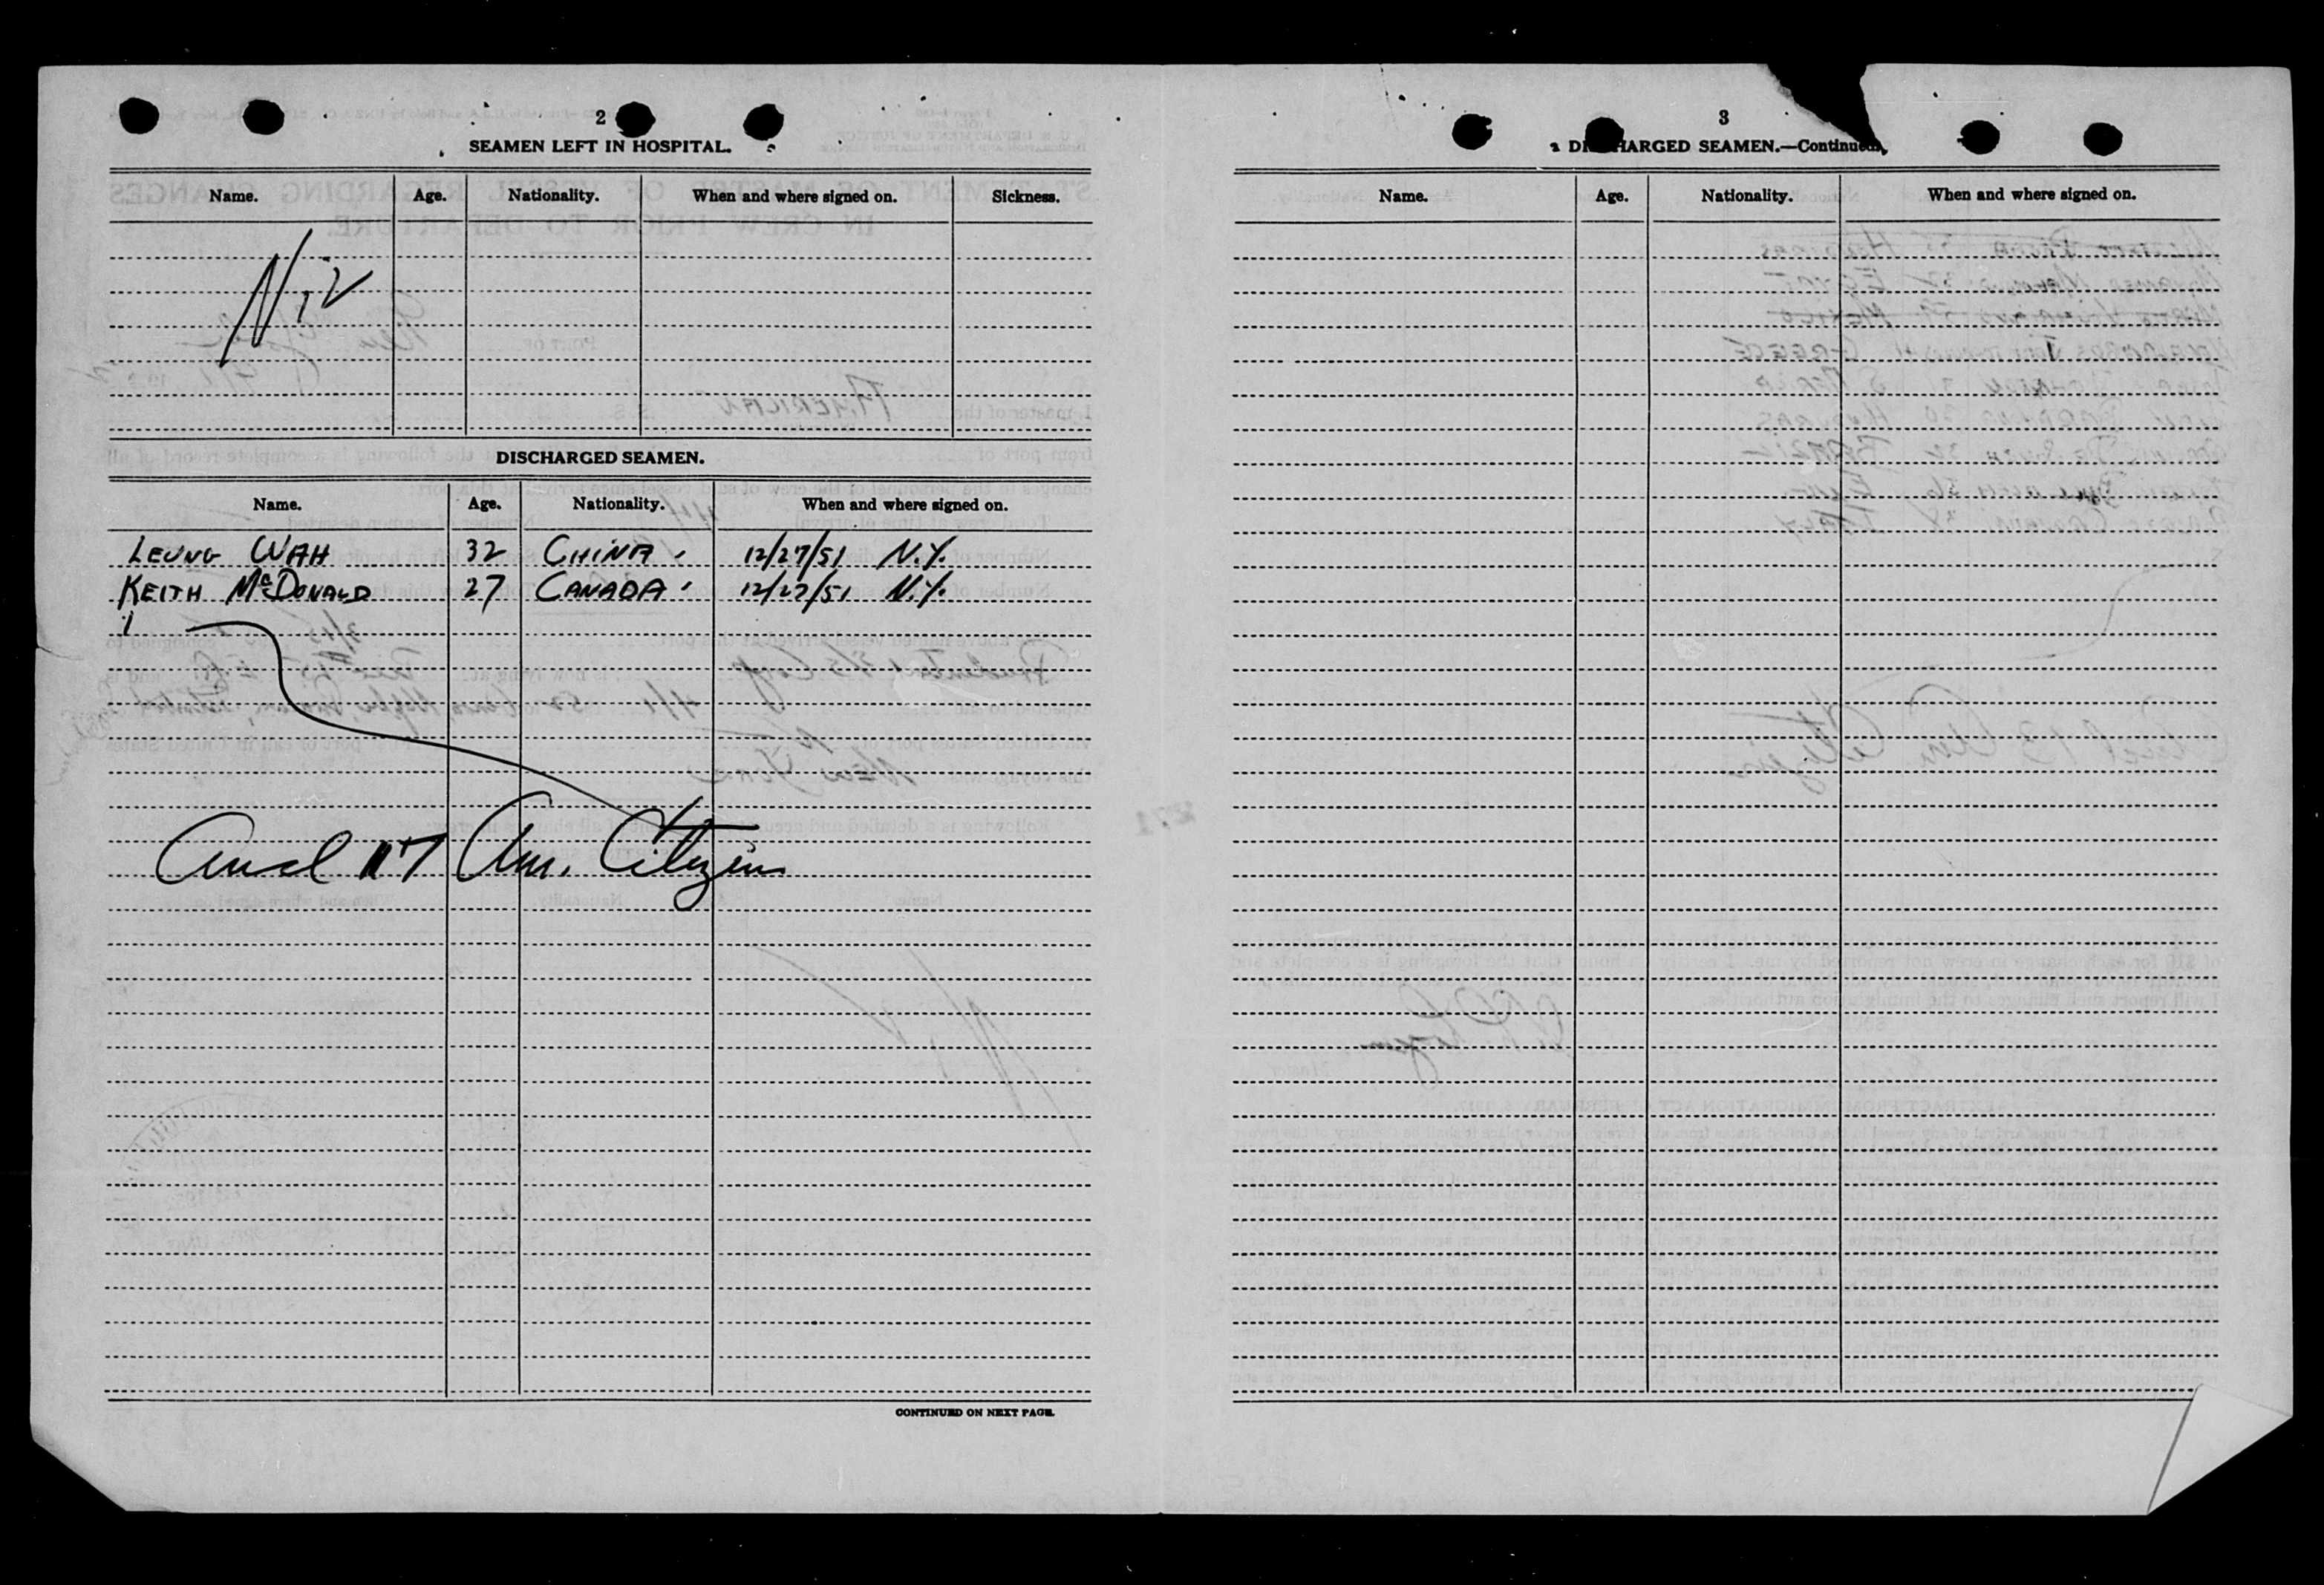 2
SEAMEN LEFT IN HOSPITAL.
Name. Age. Nationality. When and where signed on. Sickness.
Nil
DISCHARGED SEAMEN.
Name. Age. Nationality. When and where signed on.
LEUNG WAH 32 CHINA 12/27/51 N.Y.
KEITH McDONALD 27 CANADA 12/27/51 N.Y.
And 17 Am. Citizens
CONTINUED ON NEXT PAGE.
3
DISCHARGED SEAMEN.—Continued.
Name. Age. Nationality. When and where signed on.